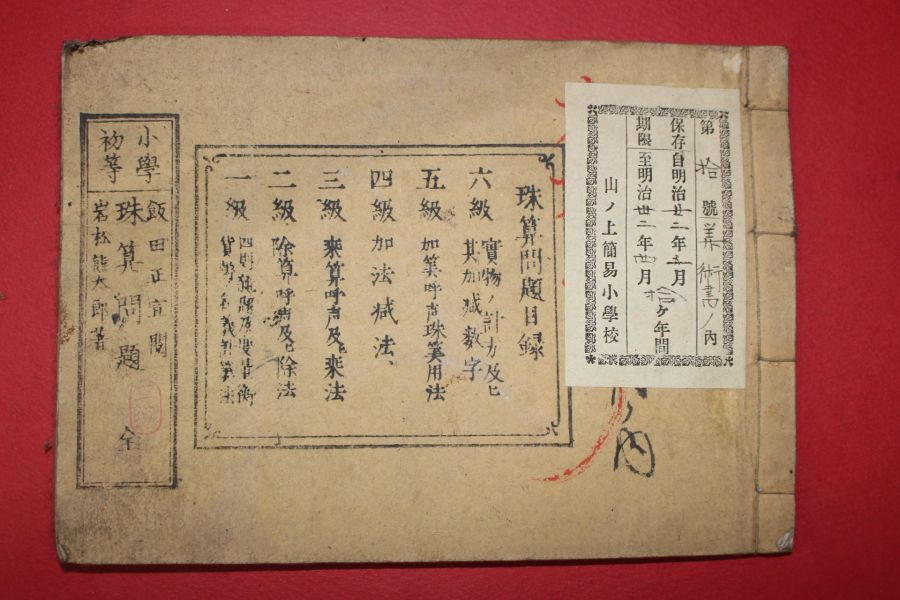 第拾號算術書ノ內
保存自明治廿二年五月
期限至明治卅二年四月
拾ケ年間
山ノ上簡易小學校
珠算問題目錄
六級 實物ノ計方及ヒ
其加減数字
五級 加算呼声珠算用法
四級 加法減法
三級 乘算呼声及乘法
二級 除算呼声及ヒ除法
一級
小學
初等
飯田正宜閱
珠算問題 全
岩松熊太郎著
ノ内